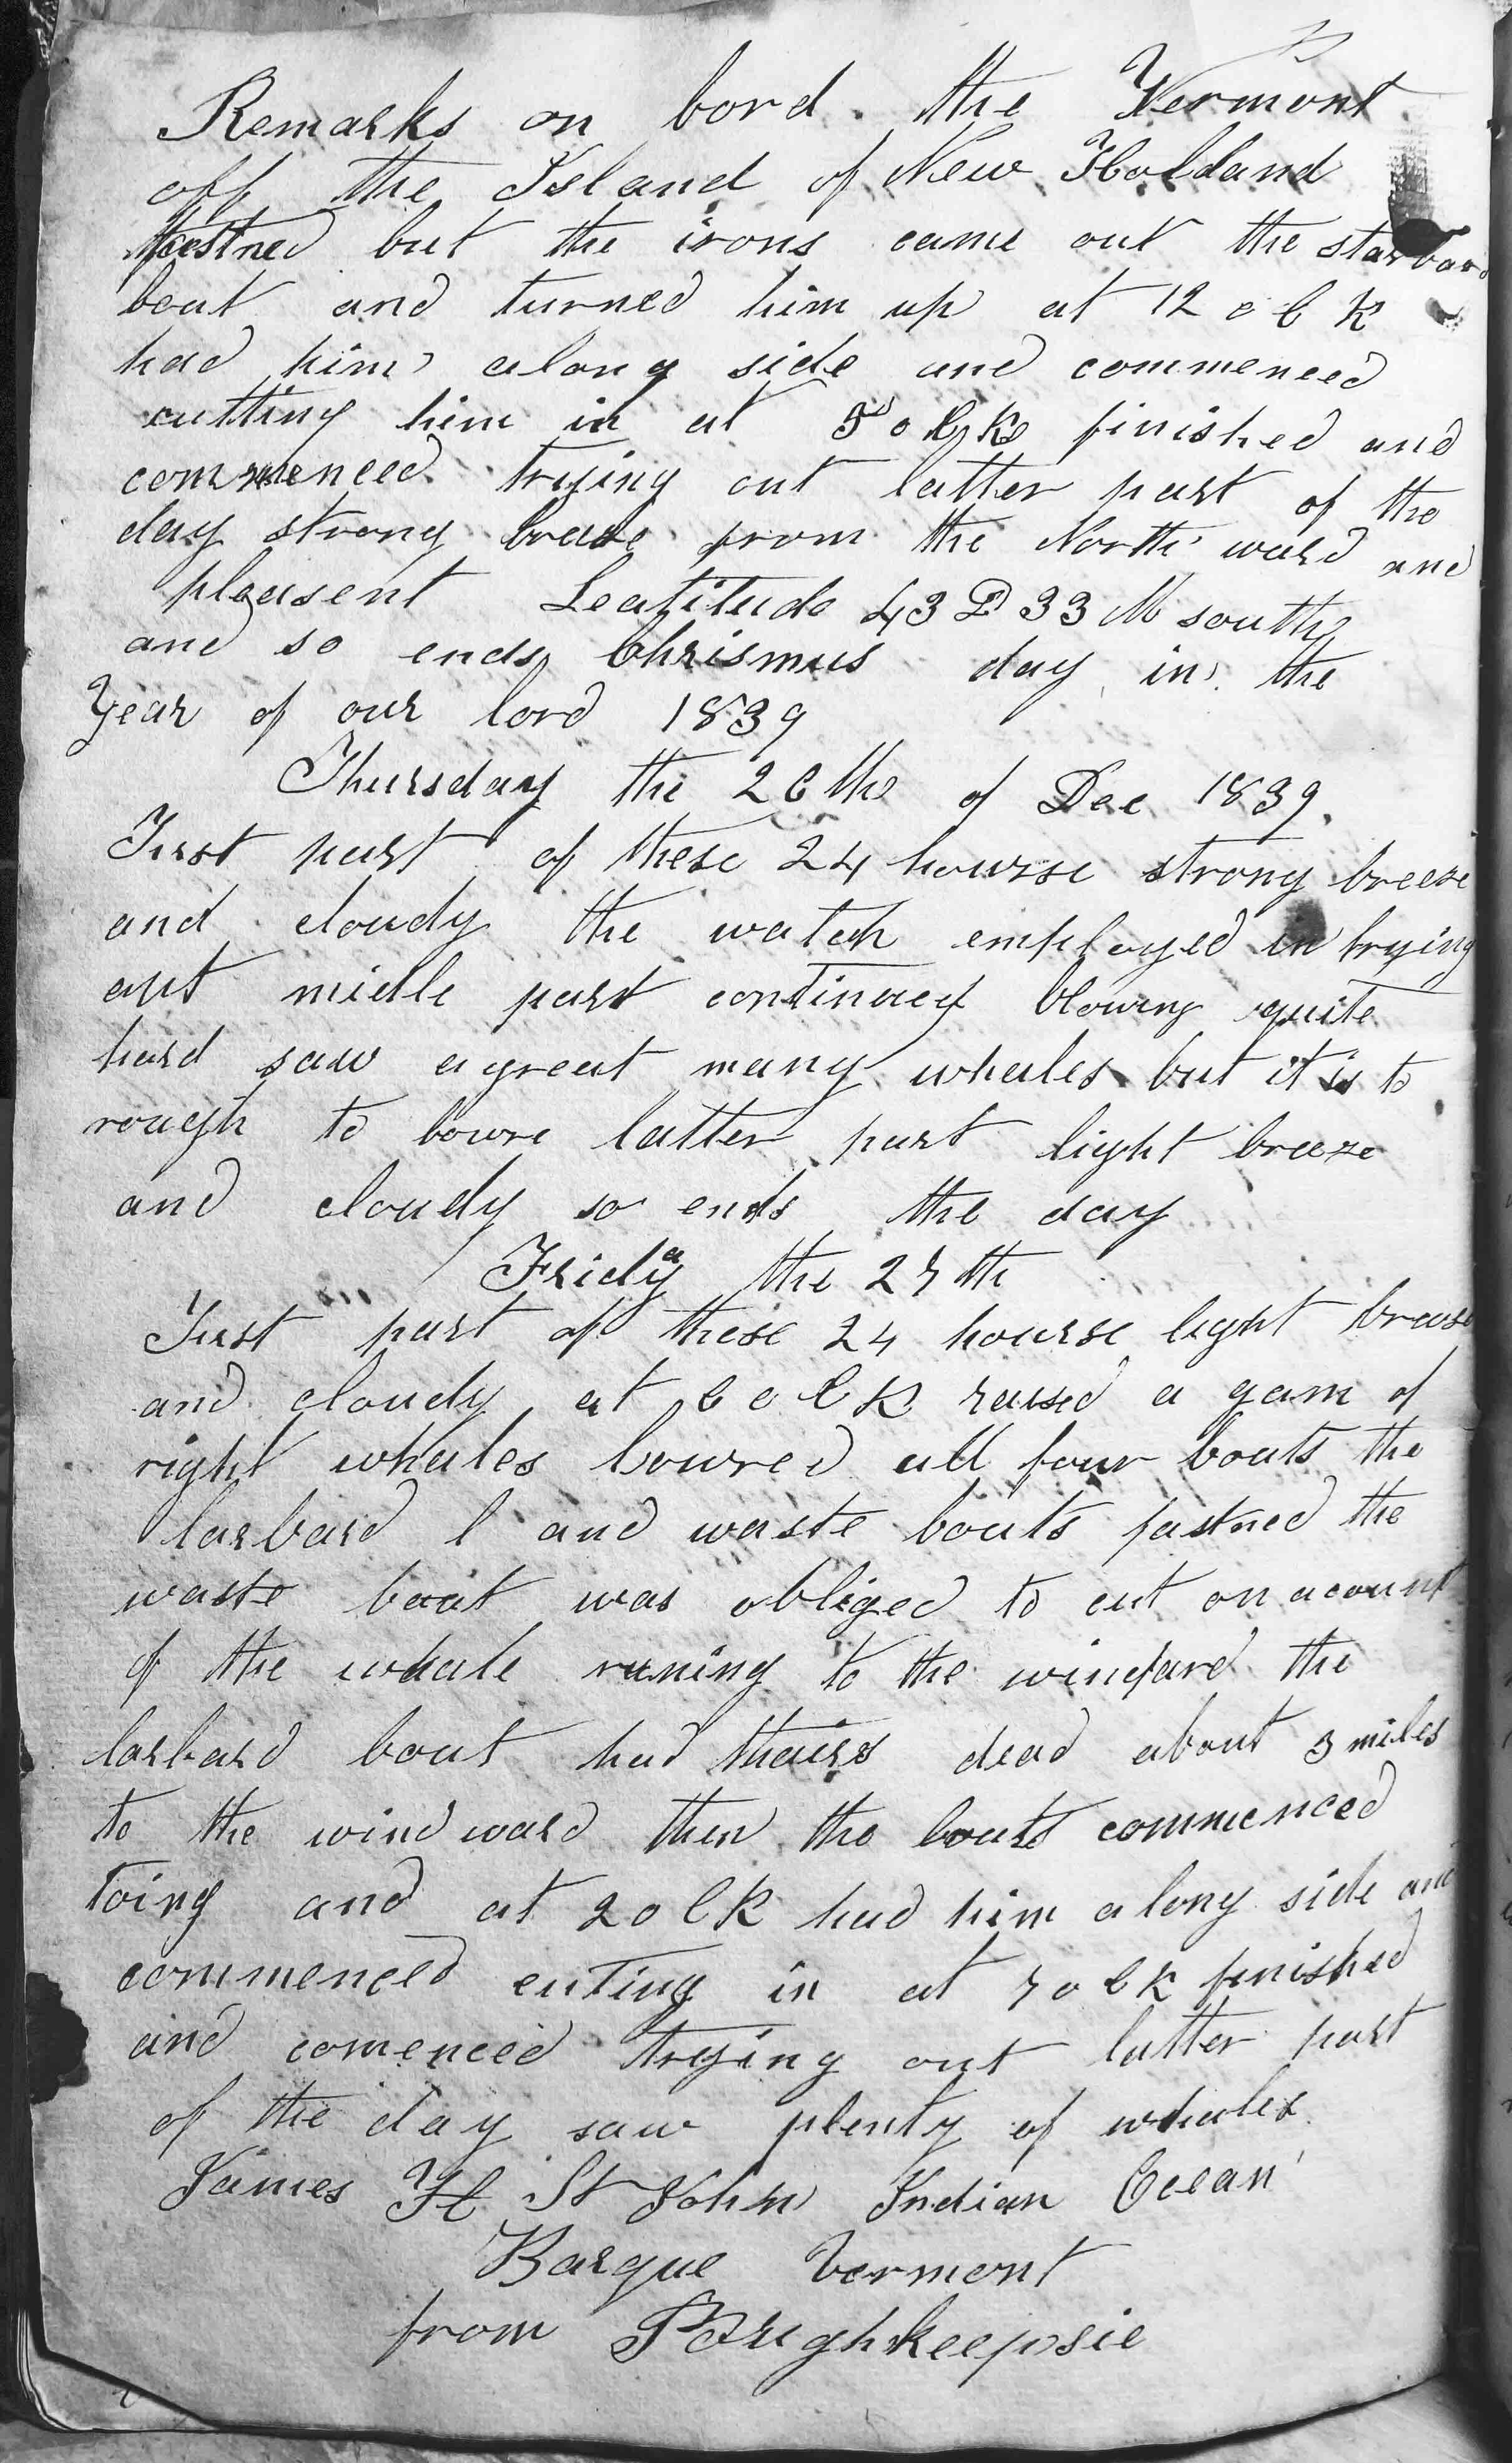 Remarks on bord the Vermont
off the Island of New Holdand
fastned but the irons came out the starboard
boat and turned him up at 12 o C K
had him along side and commenced
cutting him in at 5 o C K finished and
commenced trying out latter part of the
day strong breeze from the North ward and
pleasent Leatitude 43 D 33 M south
and so ends Chrismus day in the
Year of our lord 1839
Thursday the 26 the of Dec 1839.
First part of these 24 hourse strong breeze
and cloudy the watch employed in trying
out midle part continued blowing quite
hard saw a great many whales but it is to
rough to lowre latter part light breeze
and cloudy so ends the day
Friday the 27 th
First part of these 24 hourse light breese
and cloudy at 6 o C K raised a gam of
right whales lowred all four boats the
larbard l and waste boats fastned the
waste boat was obliged to cut on acount
of the whale runing to the windard the
larbard boat had thairs dead about 3 miles
to the wind ward then the boats commenced
toing and at 2 o C K had him along side and
commenced cuting in at 7 o C K finished
and comenced trying out latter part
of the day saw plenty of whales
James H St John Indian Ocean
Barque Vermont
from Poughkeepsie